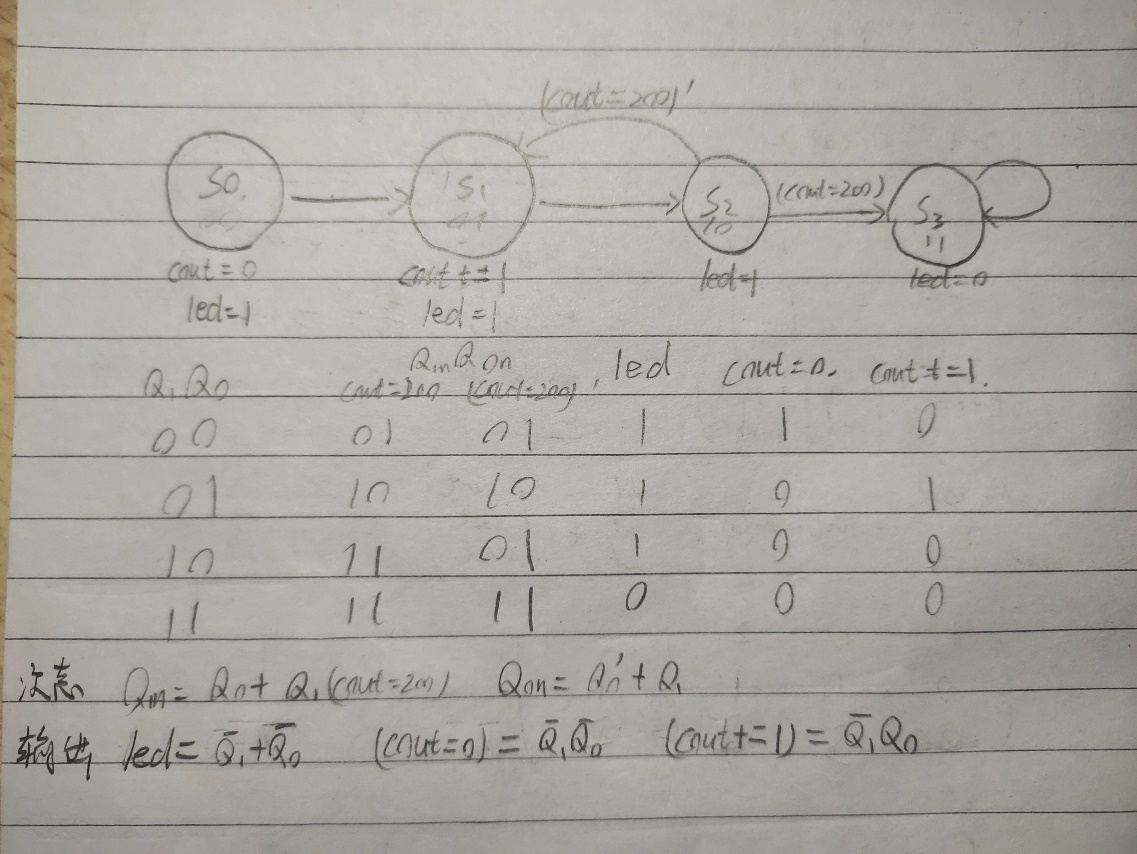 (cout=200)'
S0. S1 S2 (cout=200) S3
01 10 11
cout=0 cout+=1 led=1 led=0
led=1 led=1
Q1nQ0n
Q1Q0 cout=200 (cout=200)' led cout=0. cout+=1.
00 01 01 1 1 0
01 10 10 1 0 1
10 11 01 1 0 0
11 11 11 0 0 0
次态 Q1n=Q0+Q1(cout=200) Q0n=Q0'+Q1
输出 led=Q̄1+Q̄0 (cout=0)=Q̄1Q̄0 (cout+=1)=Q̄1Q0